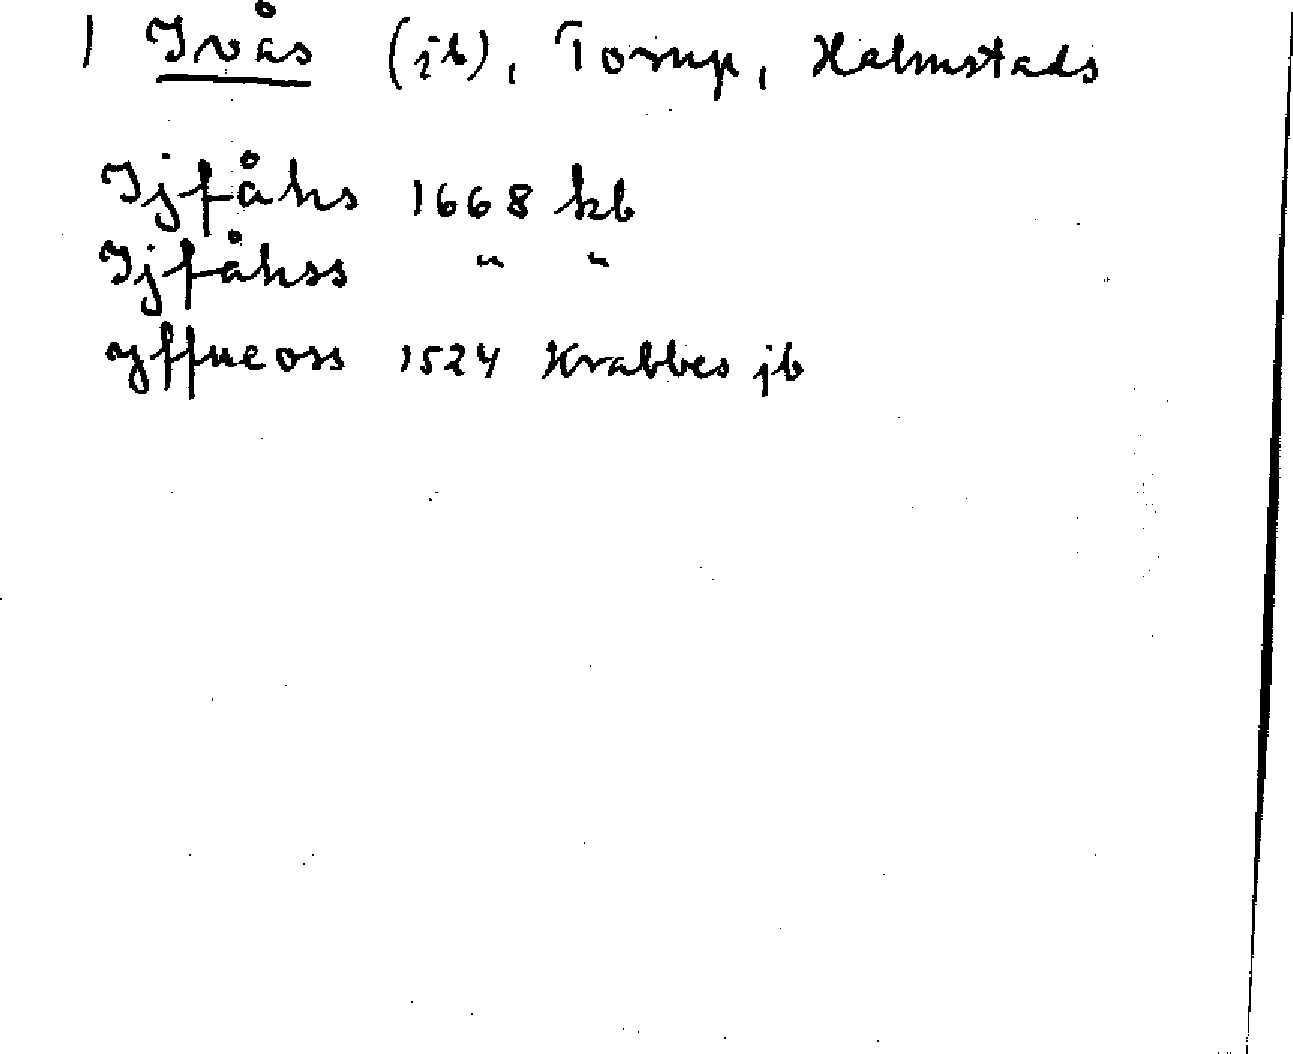 1 Ivås (jb), Torup, Halmstads
Ijfåhs 1668 kb
Ijfåhss " "
yffueoss 1524 Krabbes jb